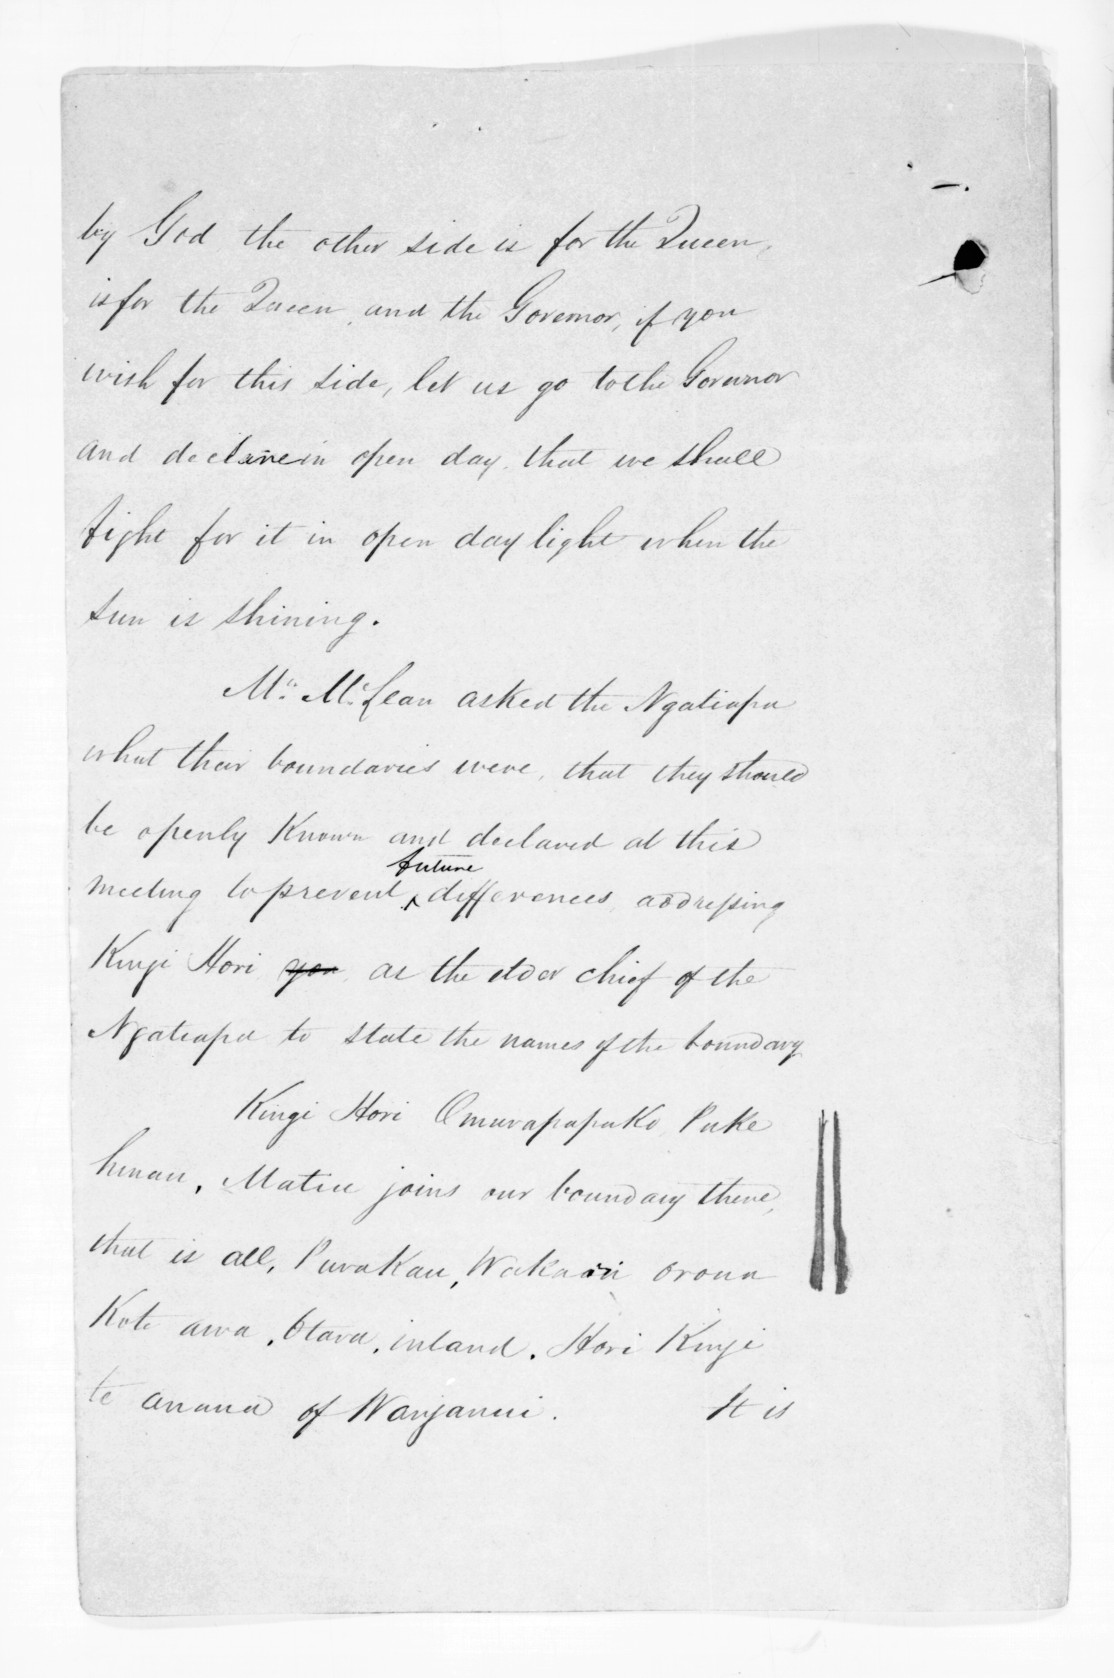 by God the other side is for the Queen,
is for the Queen, and the Governor, if you
wish for this side, let us go to the Governor
and declare in open day, that we shall
fight for it in open day light when the
sun is shining.
Mr. McLean asked the Ngatiapa
what their boundaries were, that they should
be openly Known and declared at this
meeting to prevent future differences, addressing
Kingi Hori you as the elder chief of the
Ngatiapa to state the names of the boundary
Kingi Hori Omurapapako Puke
hinau, Matiu joins our boundary there,
that is all, Purakau, Wakaari oroua
Kote awa, Otara, inland. Hori Kingi
te anaua of Wanganui. It is